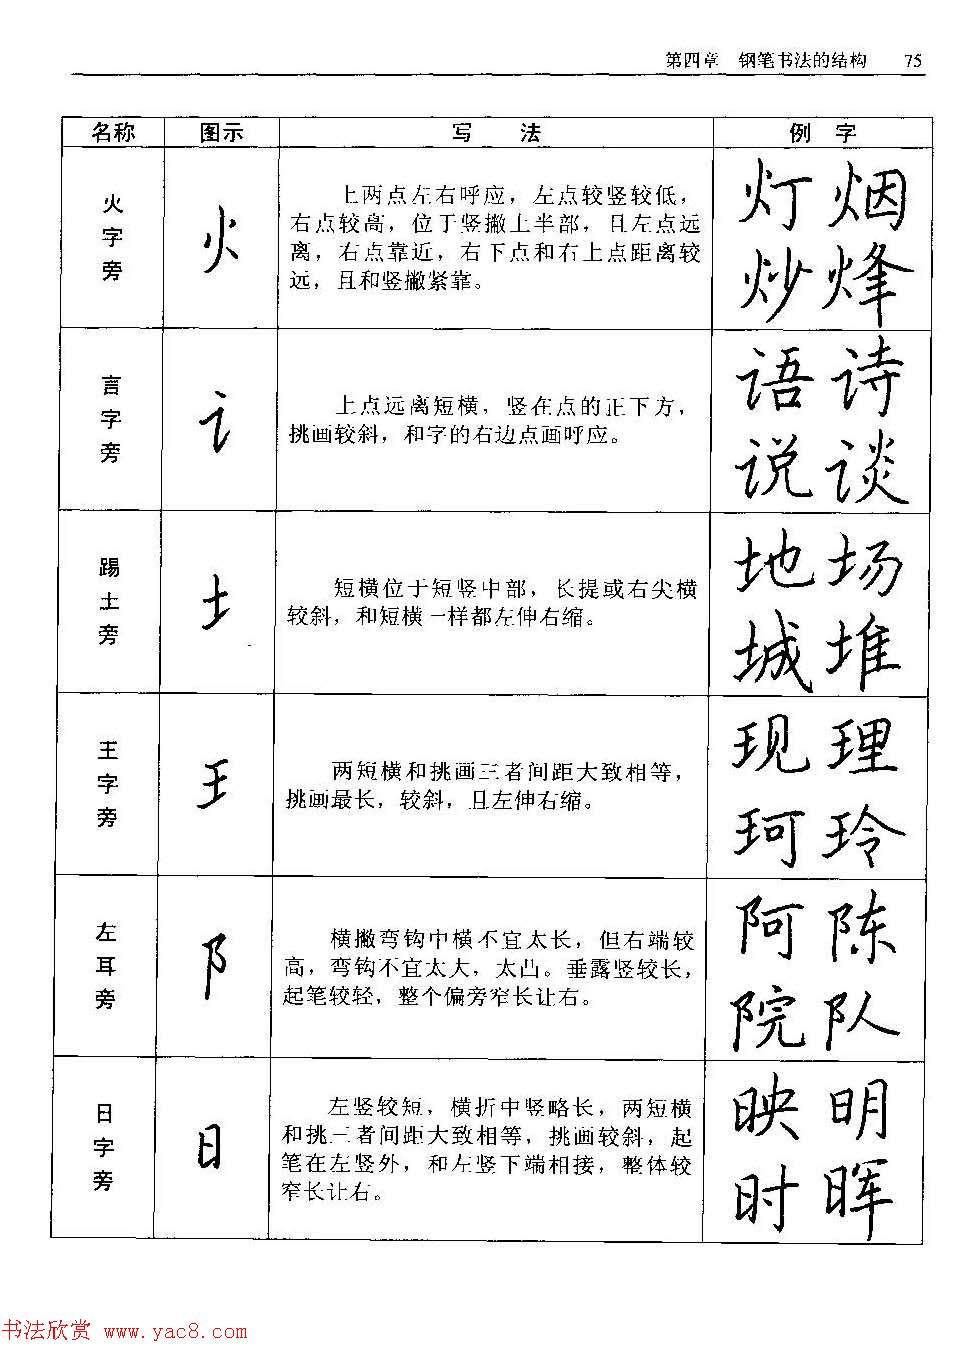 第四章 钢笔书法的结构 75
名称 图示 写法 例字
火字旁
火
上两点左右呼应，左点较竖较低，
右点较高，位于竖撇上半部，且左点远
离，右点靠近，右下点和右上点距离较
远，且和竖撇紧靠。
灯 烟
炒 烽
言字旁
讠
上点远离短横，竖在点的正下方，
挑画较斜，和字的右边点画呼应。
语 诗
说 谈
踢土旁
土
短横位于短竖中部，长提或右尖横
较斜，和短横一样都左伸右缩。
地 场
城 堆
王字旁
王
两短横和挑画三者间距大致相等，
挑画最长，较斜，且左伸右缩。
现 理
珂 玲
左耳旁
阝
横撇弯钩中横不宜太长，但右端较
高，弯钩不宜太大，太凸。垂露竖较长，
起笔较轻，整个偏旁窄长让右。
阿 陈
院 队
日字旁
日
左竖较短，横折中竖略长，两短横
和挑三者间距大致相等，挑画较斜，起
笔在左竖外，和左竖下端相接，整体较
窄长让右。
映 明
时 晖
书法欣赏 www.yac8.com